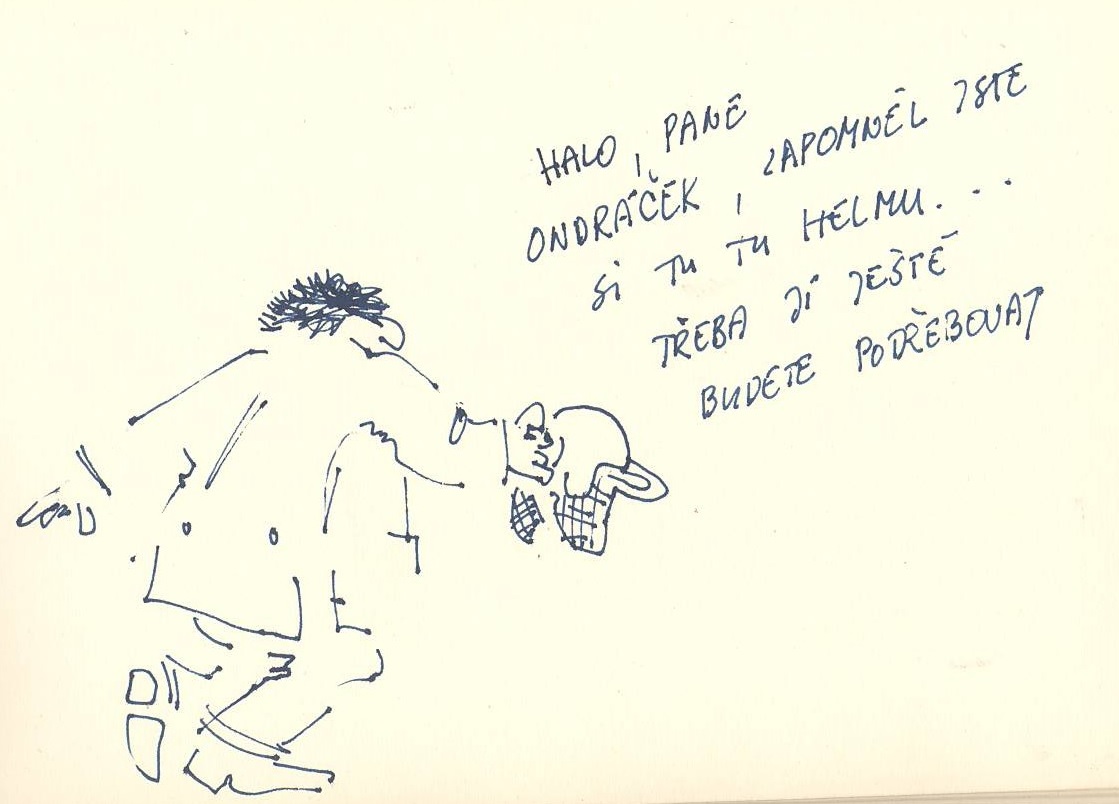 HALO, PANE
ONDRÁČEK, ZAPOMNĚL JSTE
SI TU TU HELMU...
TŘEBA JÍ JEŠTĚ
BUDETE PODŘEBOVAT